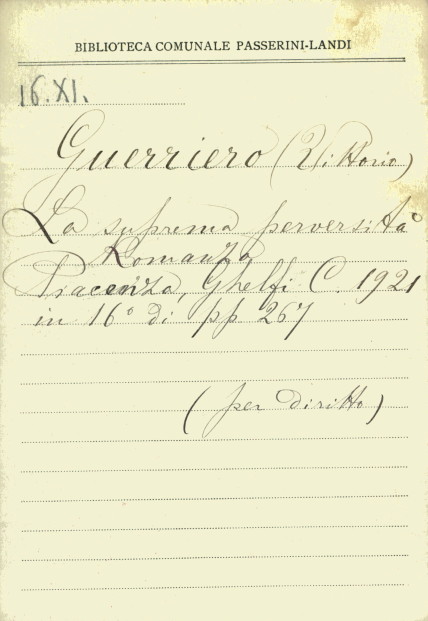 BIBLIOTECA COMUNALE PASSERINI-LANDI
16.XI.
Guerriero (Vittorio)
La suprema perversità
Romanzo
Piacenza, Ghelfi C. 1921
in 16° di pp 267
(per diritto)